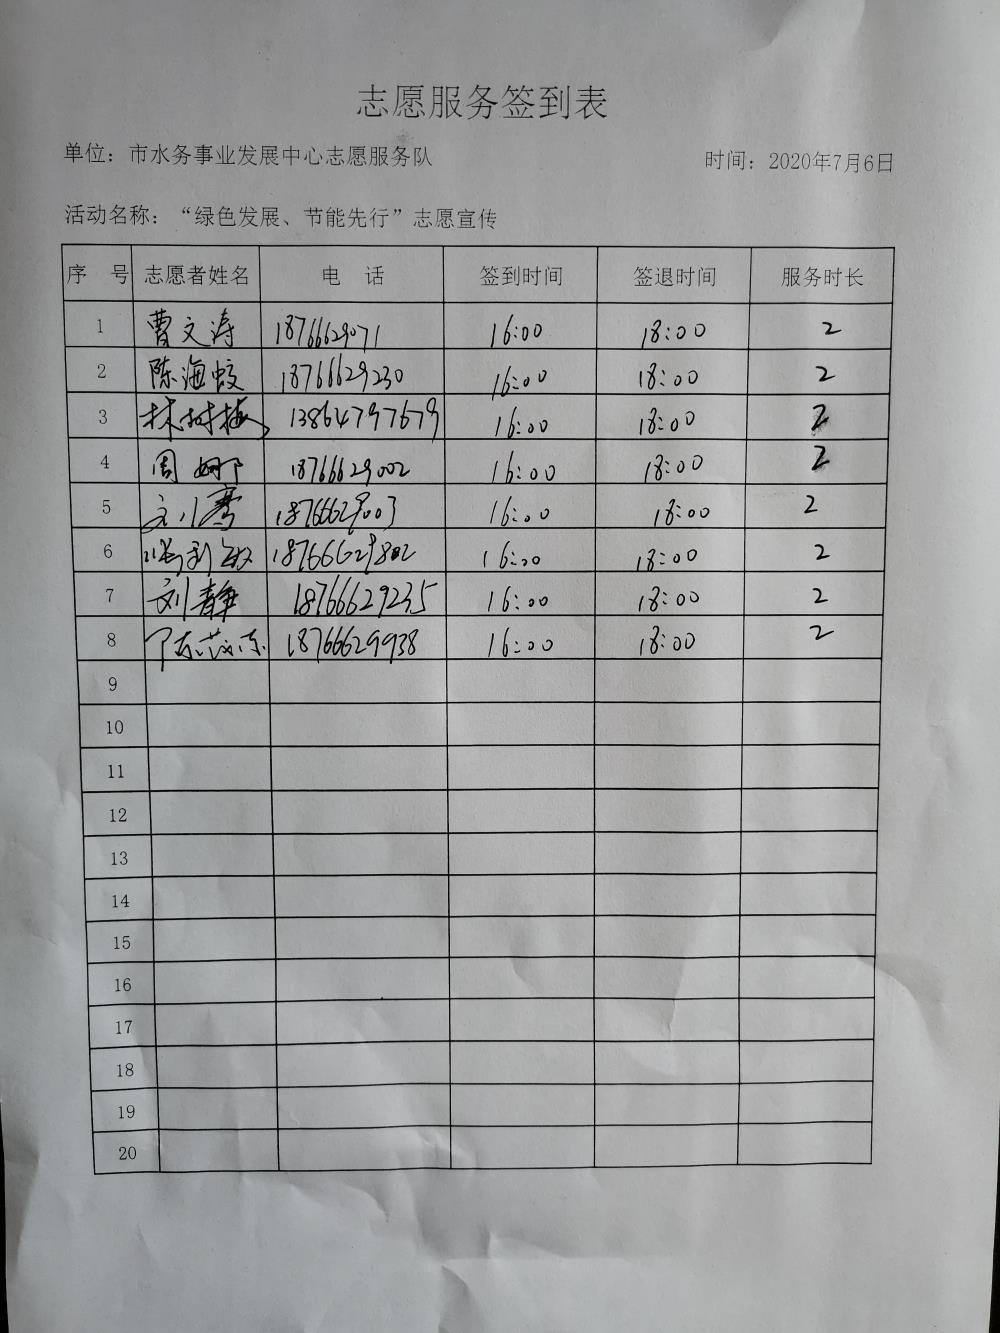 志愿服务签到表
单位：市水务事业发展中心志愿服务队 时间：2020年7月6日
活动名称：“绿色发展、节能先行”志愿宣传
序 号 志愿者姓名 电 话 签到时间 签退时间 服务时长
1 曹文涛 18766629071 16:00 18:00 2
2 陈海蛟 18766629230 16:00 18:00 2
3 林树梅 13864797679 16:00 18:00 2
4 周娜 18766629002 16:00 18:00 2
5 18766629003 16:00 18:00 2
6 18766629802 16:00 18:00 2
7 刘静 18766629235 16:00 18:00 2
8 18766629938 16:00 18:00 2
9
10
11
12
13
14
15
16
17
18
19
20